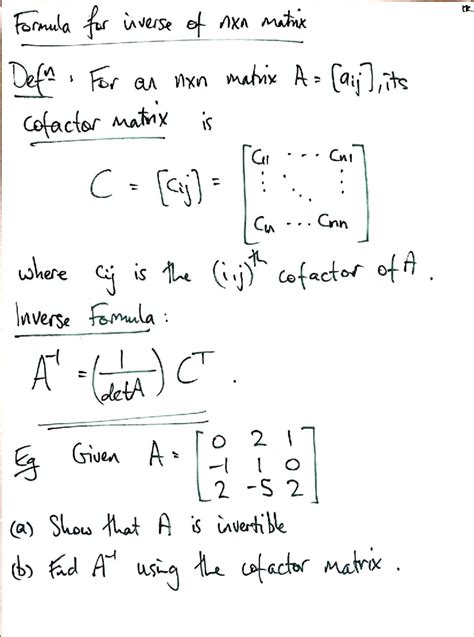 Formula for inverse of nxn matrix
Defⁿ: For an nxn matrix A = [aij], its
cofactor matrix is
C = [cij] = [C11 ... Cn1
⋮ ⋱ ⋮
C1n ... Cnn]
where cij is the (i,j)th cofactor of A.
Inverse Formula:
A⁻¹ = (1/detA) Cᵀ.
Eg Given A = [0 2 1
-1 1 0
2 -5 2]
(a) Show that A is invertible
(b) Find A⁻¹ using the cofactor matrix.